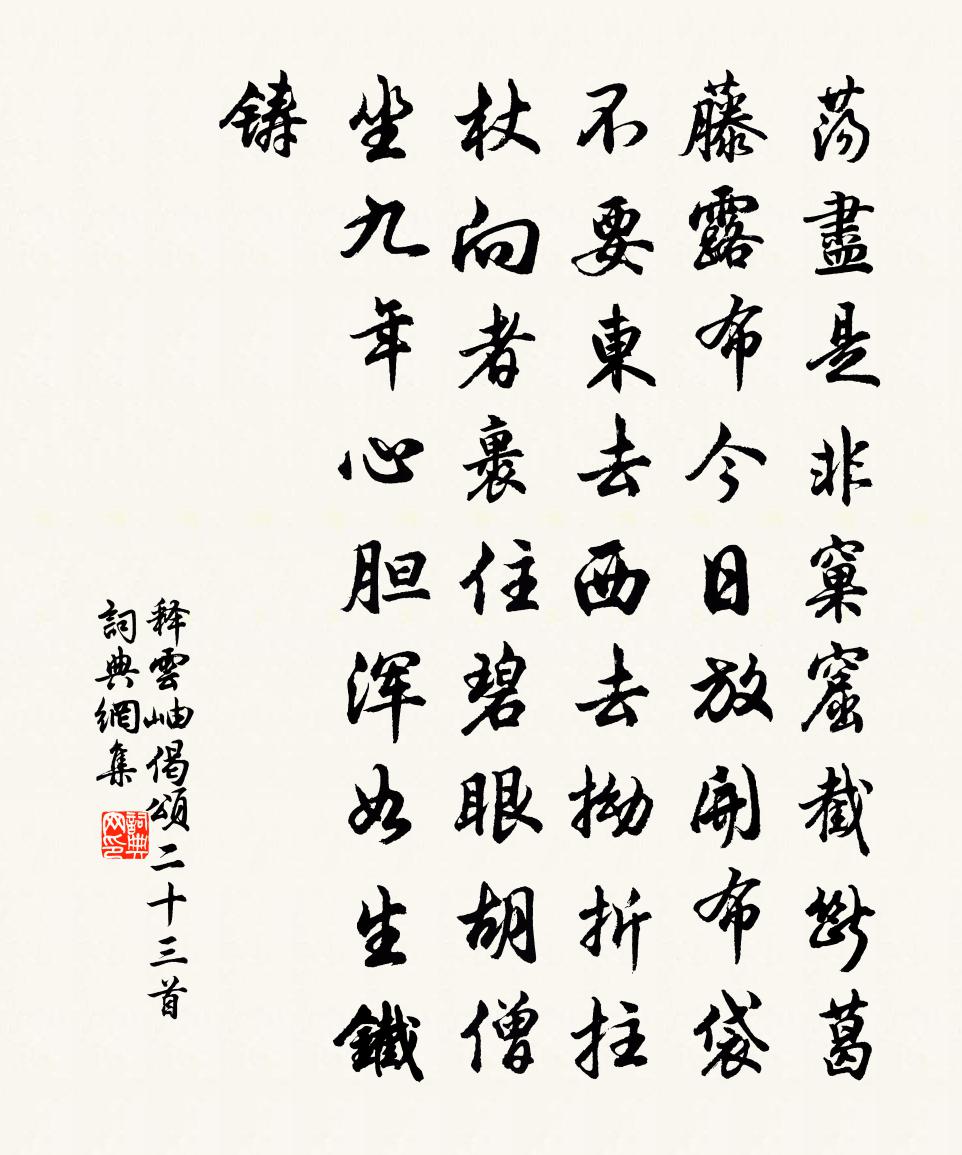 荡盡是非窠窟截斷葛
藤露布今日放開布袋
不要東去西去拗折拄
杖向者裹住碧眼胡僧
坐九年心胆渾如生鐵
鑄
释雲岫偈頌二十三首
詞典網集
詞典网印